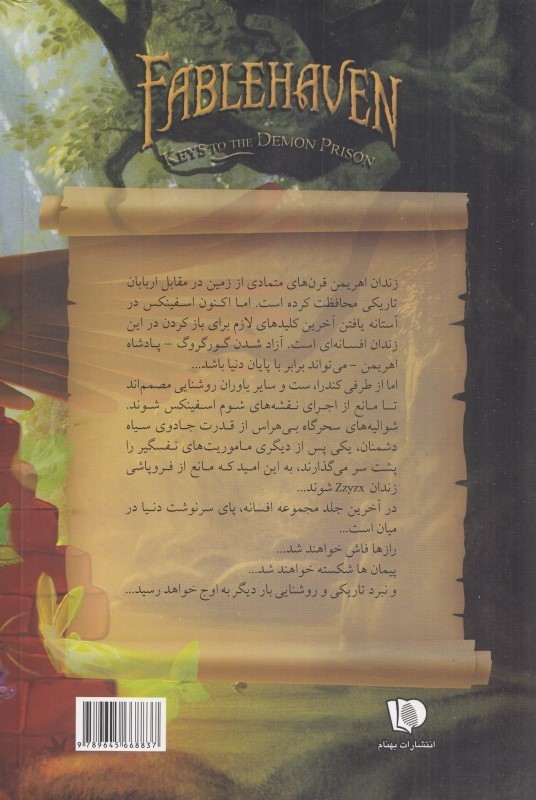 FABLEHAVEN
KEYS TO THE DEMON PRISON
زندان اهریمن قرن‌های متمادی از زمین در مقابل اربابان
تاریکی محافظت کرده است. اما اکنون اسفینکس در
آستانه یافتن آخرین کلیدهای لازم برای باز کردن در این
زندان افسانه‌ای است. آزاد شدن گورگروگ - پادشاه
اهریمن - می‌تواند برابر با پایان دنیا باشد...
اما از طرفی کندرا، ست و سایر یاوران روشنایی مصمم‌اند
تا مانع از اجرای نقشه‌های شوم اسفینکس شوند.
شوالیه‌های سحرگاه بی‌هراس از قدرت جادوی سیاه
دشمنان، یکی پس از دیگری ماموریت‌های نفسگیر را
پشت سر می‌گذارند، به این امید که مانع از فروپاشی
زندان Zzyzx شوند...
در آخرین جلد مجموعه افسانه، پای سرنوشت دنیا در
میان است...
رازها فاش خواهند شد...
پیمان ها شکسته خواهند شد...
و نبرد تاریکی و روشنایی بار دیگر به اوج خواهد رسید...
9 789645 668837
انتشارات بهنام